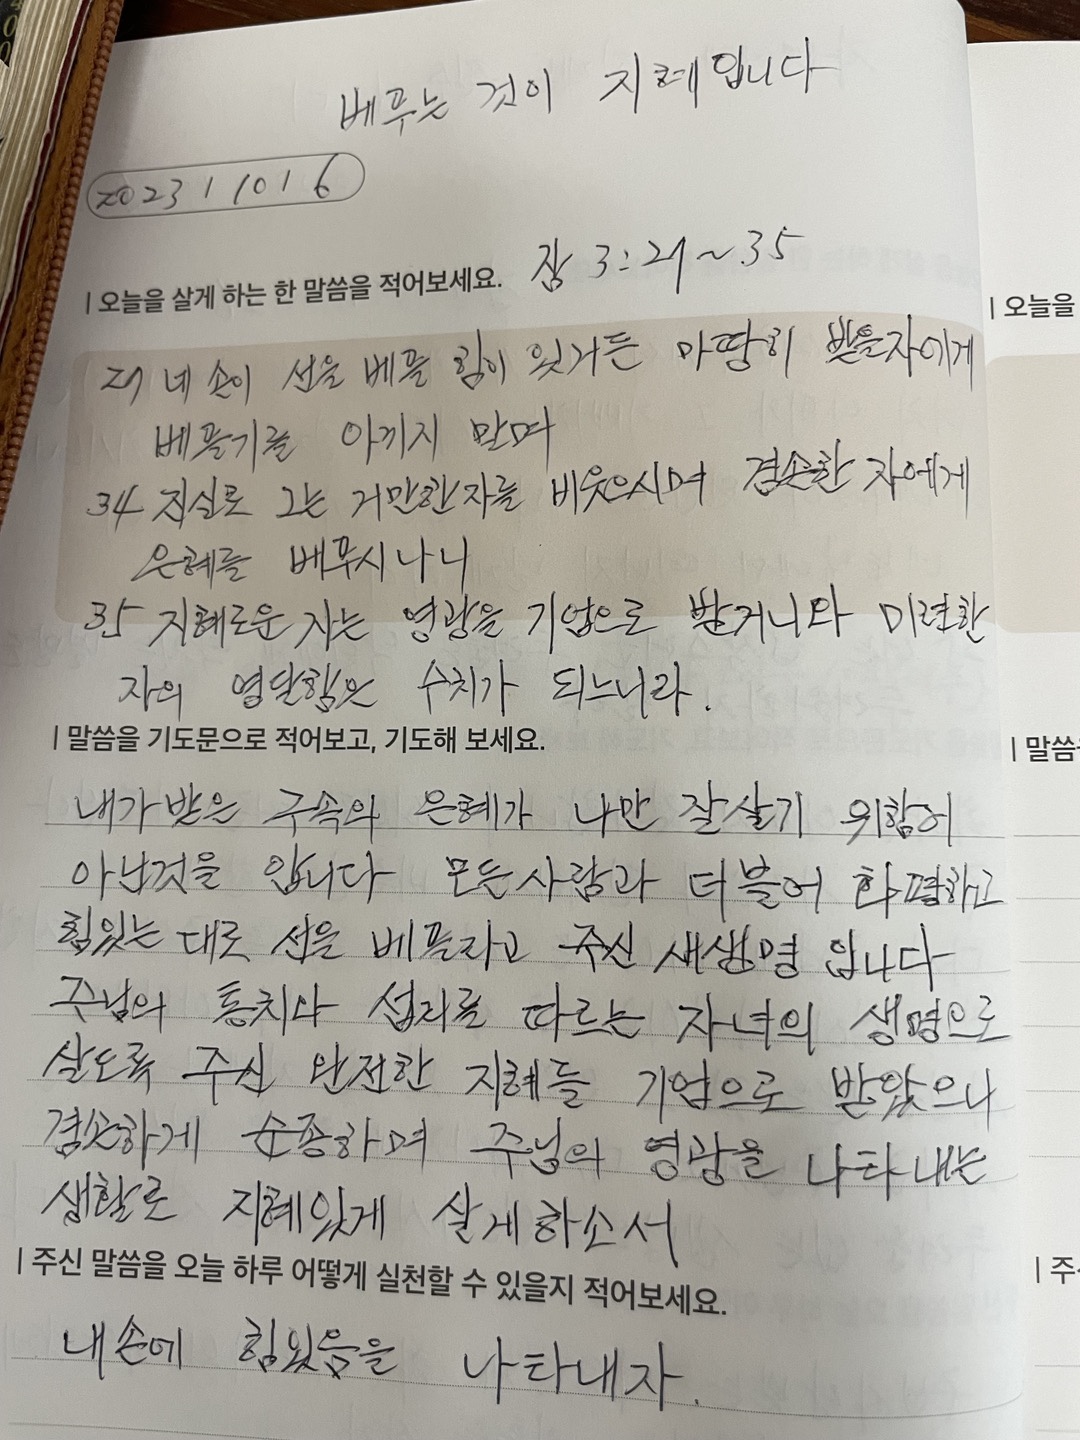 베푸는 것이 지혜입니다
2023 1 10 1 6
| 오늘을 살게 하는 한 말씀을 적어보세요. 잠 3:27~35
27 네 손이 선을 베풀 힘이 있거든 마땅히 받을자에게
베풀기를 아끼지 말며
34 진실로 그는 거만한자를 비웃으시며 겸손한 자에게
은혜를 베푸시나니
35 지혜로운 자는 영광을 기업으로 받거니와 미련한
자의 영달함은 수치가 되느니라.
| 말씀을 기도문으로 적어보고, 기도해 보세요.
내가 받은 구속의 은혜가 나만 잘살기 위함이
아닌것을 압니다 모든사람과 더불어 화평하고
힘있는 대로 선을 베풀라고 주신 새생명 입니다
주님의 통치와 섭리를 따르는 자녀의 생명으로
살도록 주신 완전한 지혜를 기업으로 받았으니
겸손하게 순종하며 주님의 영광을 나타내는
생활로 지혜있게 살게하소서
| 주신 말씀을 오늘 하루 어떻게 실천할 수 있을지 적어보세요.
내손에 힘있음을 나타내자.
| 오늘을
| 말씀
| 주